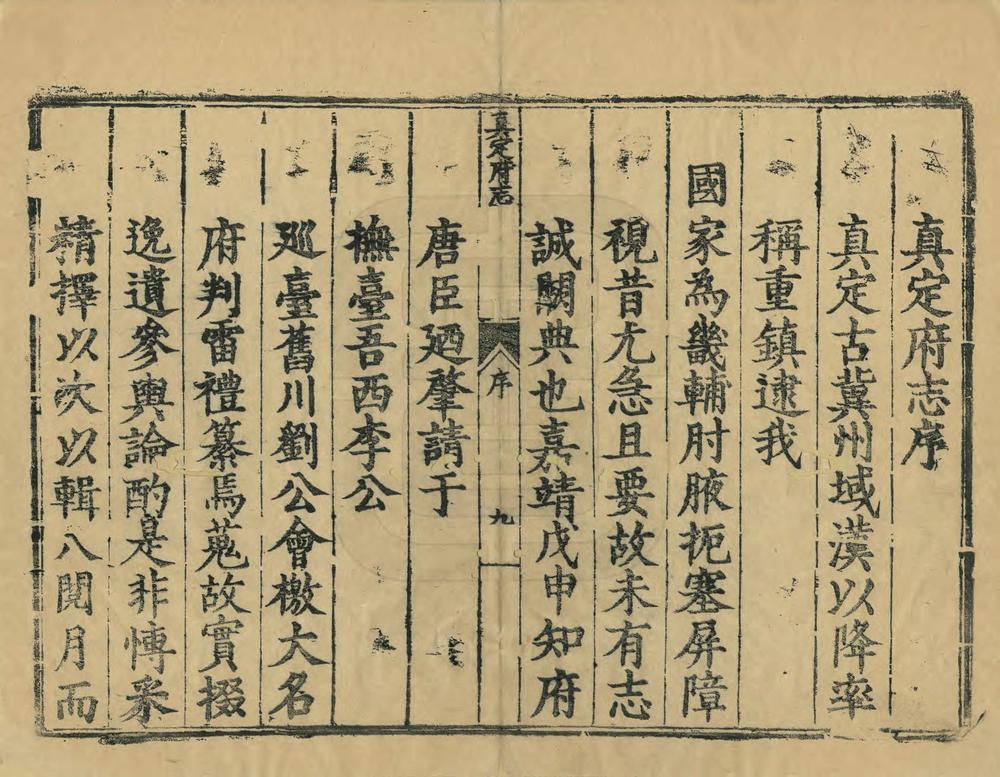 真定府志序
真定古冀州域漢以降率
稱重鎮逮我
國家為畿輔肘腋扼塞屏障
視昔尤急且要故未有志
誠闕典也嘉靖戊申知府
真定府志
序
九
唐臣廼肇請于
撫臺吾西李公
廵臺舊川劉公會檄大名
府判雷禮纂焉蒐故實掇
逸遺參輿論酌是非慱采
精擇以次以輯八閱月而